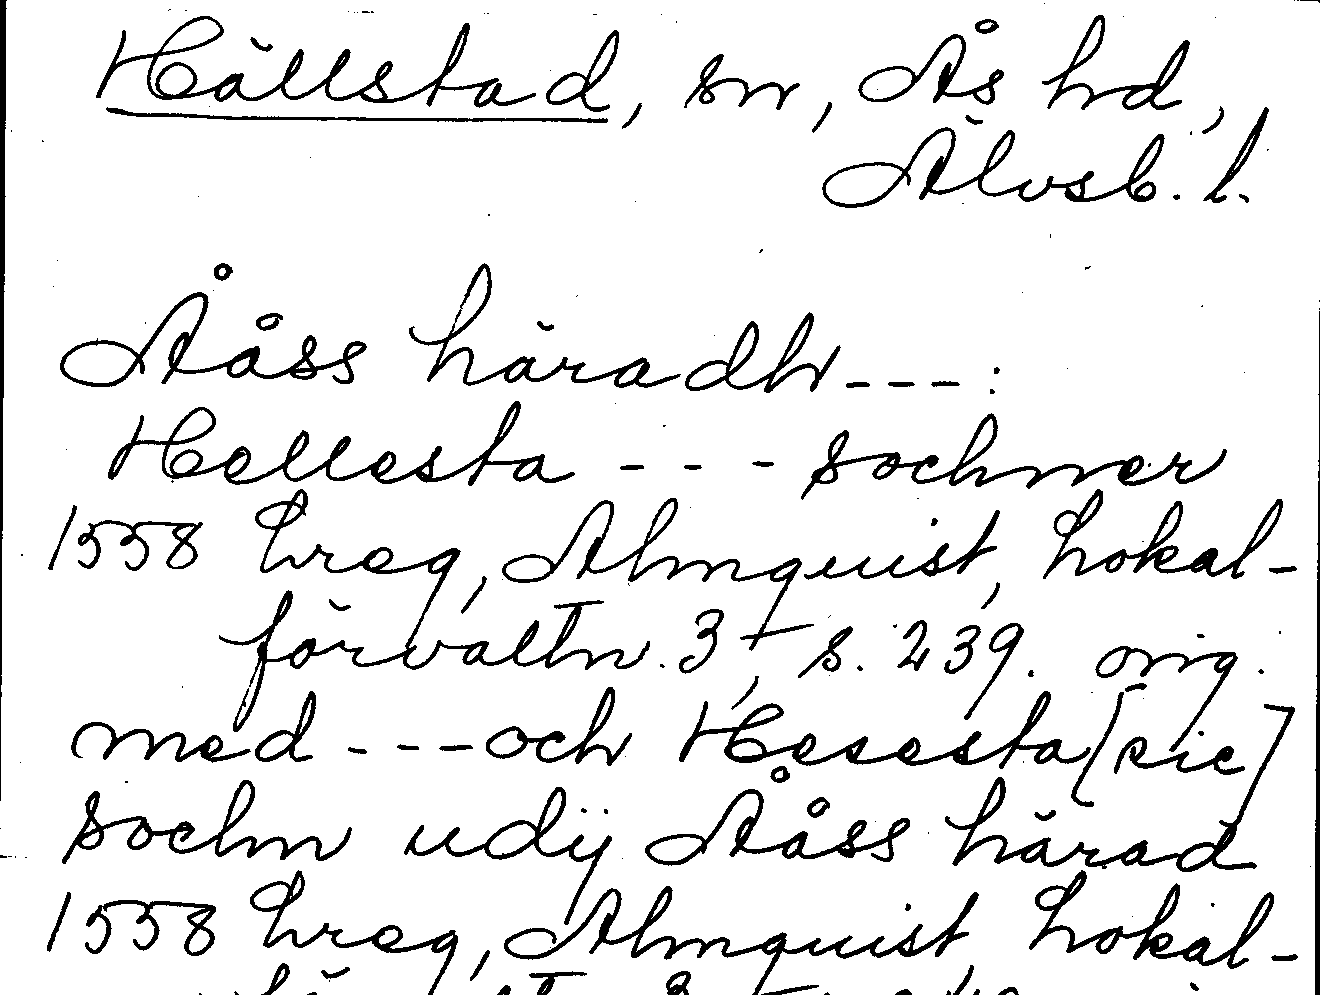 Hällstad, sn, Ås hd,
Älvsb. l.
Ååss häradh---:
Hellesta --- sochner
1558 hreg, Almquist, Lokal-
förvaltn. 3, s. 239. orig.
med ---och Hesesta [sic]
sochn udij Ååss härad
1558 hreg, Almquist, Lokal-